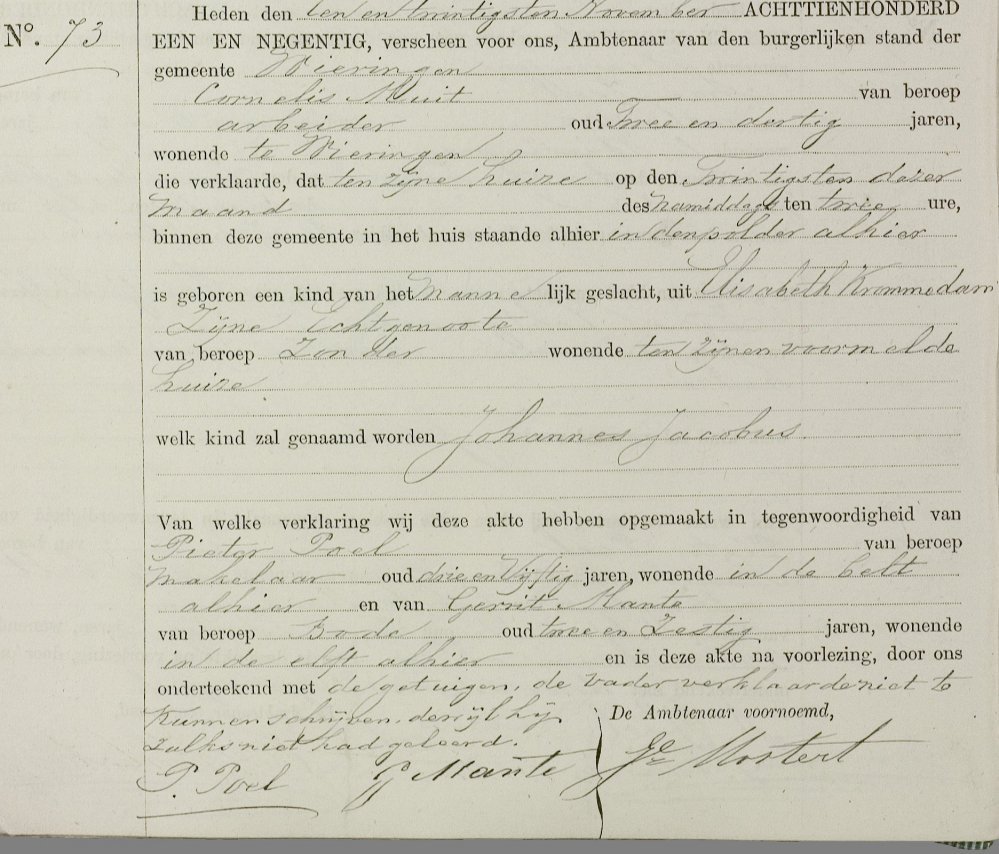 Nº. 73
Heden den een en twintigsten November ACHTTIENHONDERD
EEN EN NEGENTIG, verscheen voor ons, Ambtenaar van den burgerlijken stand der
gemeente Wieringen
Cornelis Muit van beroep
arbeider oud Twee en dertig jaren,
wonende te Wieringen
die verklaarde, dat ten zijne huize op den Twintigsten dezer
maand des namiddags ten twee ure,
binnen deze gemeente in het huis staande alhier in den polder alhier
is geboren een kind van het Manne lijk geslacht, uit Elisabeth Krommedam
Zijne Echtgenoote
van beroep Zonder wonende ten zijnen voormelde
huize
welk kind zal genaamd worden Johannes Jacobus.
Van welke verklaring wij deze akte hebben opgemaakt in tegenwoordigheid van
Pieter Poel van beroep
Makelaar oud drie en Vijftig jaren, wonende in de belt
alhier en van Gerrit Mante
van beroep Bode oud twee en Zestig jaren, wonende
in de elft alhier en is deze akte na voorlezing, door ons
onderteekend met de getuigen, de vader verklaarde niet te
Kunnen schrijven, dewijl hij
Zulks niet had geleerd.
De Ambtenaar voornoemd,
P. Poel G Mante Mostert